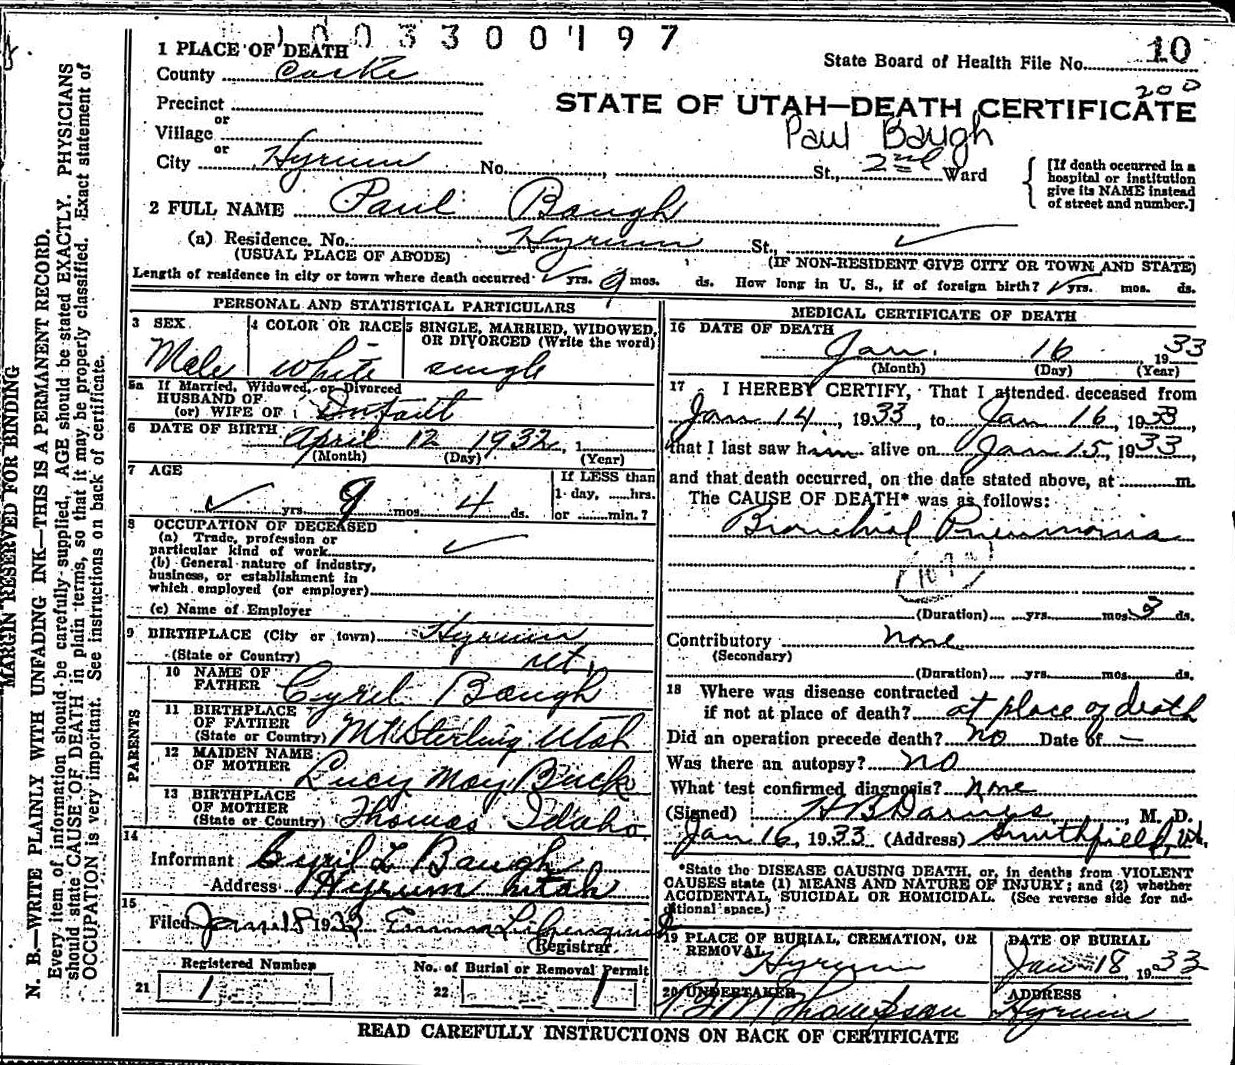 1003300197
1 PLACE OF DEATH
State Board of Health File No. 10
County Cache
200
Precinct
STATE OF UTAH—DEATH CERTIFICATE
or
Village
Paul Baugh
or
City Hyrum No. , St., 2nd Ward
[If death occurred in a
hospital or institution
give its NAME instead
of street and number.]
2 FULL NAME Paul Baugh
(a) Residence. No. Hyrum St., ✓
(USUAL PLACE OF ABODE) (IF NON-RESIDENT GIVE CITY OR TOWN AND STATE)
Length of residence in city or town where death occurred ✓ yrs. 9 mos. ds. How long in U. S., if of foreign birth? ✓ yrs. mos. ds.
PERSONAL AND STATISTICAL PARTICULARS
3 SEX
Male
4 COLOR OR RACE
white
5 SINGLE, MARRIED, WIDOWED,
OR DIVORCED (Write the word)
single
5a If Married, Widowed, or Divorced
HUSBAND OF
(or) WIFE OF Infant
6 DATE OF BIRTH April 12 1932, 1
(Month) (Day) (Year)
7 AGE
✓ yrs 9 mos 4 ds.
If LESS than
1 day, hrs.
or min.?
8 OCCUPATION OF DECEASED
(a) Trade, profession or
particular kind of work ✓
(b) General nature of industry,
business, or establishment in
which employed (or employer)
(c) Name of Employer
9 BIRTHPLACE (City or town) Hyrum
(State or Country) Ut.
PARENTS
10 NAME OF
FATHER Cyril Baugh
11 BIRTHPLACE
OF FATHER
(State or Country) Mt Sterling Utah
12 MAIDEN NAME
OF MOTHER Lucy May Buck
13 BIRTHPLACE
OF MOTHER
(State or Country) Thomas Idaho
14
Informant Cyril L Baugh
Address Hyrum Utah
15
Filed Jan 18 1933
Registrar
Registered Number
21 1
No. of Burial or Removal Permit
22 1
MEDICAL CERTIFICATE OF DEATH
16 DATE OF DEATH
Jan. 16, 1933
(Month) (Day) (Year)
17 I HEREBY CERTIFY, That I attended deceased from
Jan 14, 1933, to Jan 16, 1933,
that I last saw him alive on Jan 15, 1933,
and that death occurred, on the date stated above, at m.
The CAUSE OF DEATH* was as follows:
Bronchial Pneumonia
(Duration) yrs. mos. 3 ds.
Contributory none
(Secondary)
(Duration) yrs. mos. ds.
18 Where was disease contracted
if not at place of death? at place of death
Did an operation precede death? no Date of —
Was there an autopsy? no
What test confirmed diagnosis? none
(Signed) H B , M. D.
Jan 16, 1933 (Address) Smithfield, Ut.
*State the DISEASE CAUSING DEATH, or, in deaths from VIOLENT
CAUSES state (1) MEANS AND NATURE OF INJURY; and (2) whether
ACCIDENTAL, SUICIDAL OR HOMICIDAL. (See reverse side for ad-
ditional space.)
19 PLACE OF BURIAL, CREMATION, OR
REMOVAL
Hyrum
DATE OF BURIAL
Jan 18, 1933
20 UNDERTAKER
ADDRESS
Hyrum
READ CAREFULLY INSTRUCTIONS ON BACK OF CERTIFICATE
MARGIN RESERVED FOR BINDING
N. B.—WRITE PLAINLY WITH UNFADING INK—THIS IS A PERMANENT RECORD.
Every item of information should be carefully supplied. AGE should be stated EXACTLY. PHYSICIANS
should state CAUSE OF DEATH in plain terms, so that it may be properly classified. Exact statement of
OCCUPATION is very important. See instructions on back of certificate.